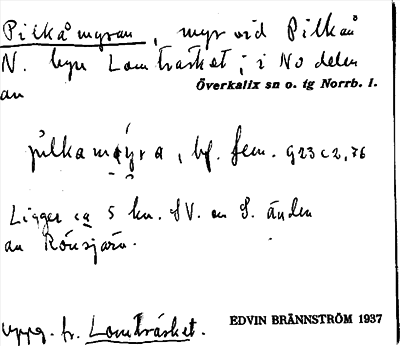 Pilkåmyran, myr vid Pilkån
N. byn Lomträsket; i No delen
av
Överkalix sn o. tg Norrb. l.
pilkamýra, bf. fem. G23 c 2, 76
Ligger ca 5 km. SV. om S. änden
av Rönsjärv.
uppg. fr. Lomträsket.
EDVIN BRÄNNSTRÖM 1937